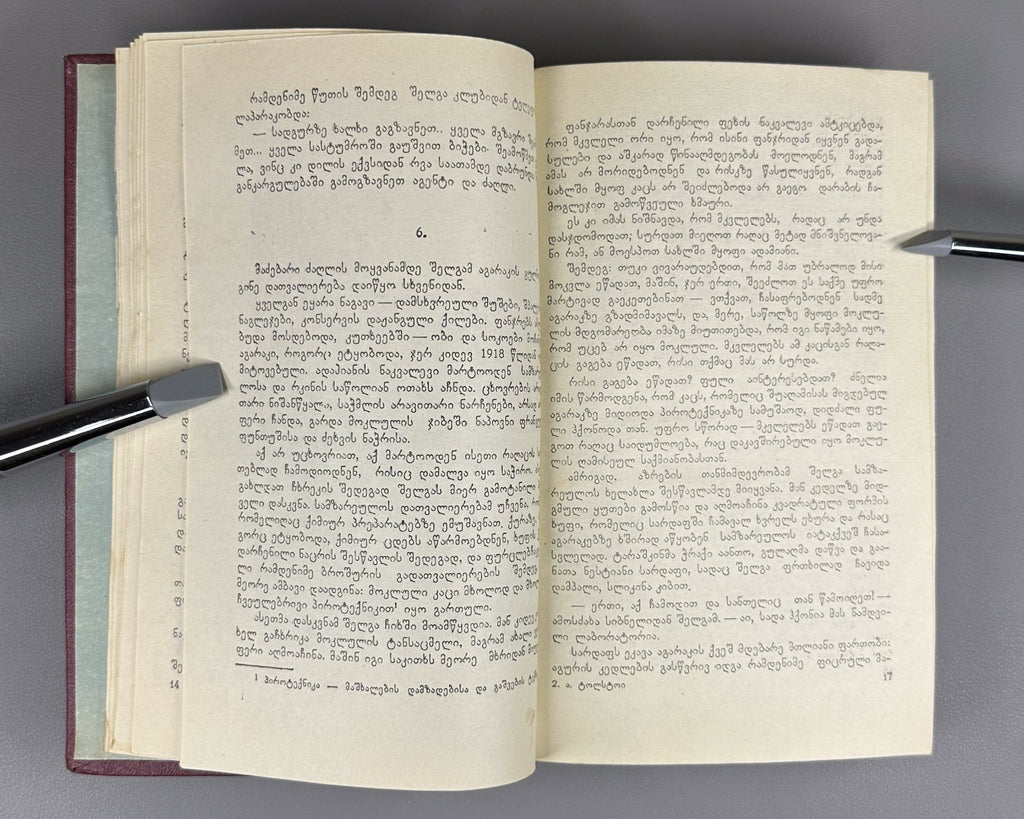 რამდენიმე წუთის შემდეგ შელგა კლუბიდან
ლაპარაკობდა:
— სადგურზე ხალხი გაგზავნეთ.. ყველა მგზავრი
მეთ... ყველა სასტუმროში გაუშვით ბიჭები.
ლა, ვინც კი დილის ექვსიდან რვა საათამდე
განკარგულებაში გამოგზავნეთ აგენტი და ძაღლი.
6.
მაძებარი ძაღლის მოყვანამდე შელგამ აგარაკის
გინე დათვალიერება დაიწყო სხვენიდან.
ყველგან ეყარა ნაგავი — დამსხვრეული შუშები,
ნაგლეჯები, კონსერვის დაჟანგული ქილები. ფანჯრებს
ბუდა მოსდებოდა, კუთხეებში — ობი და სოკოები
აგარაკი, როგორც ეტყობოდა, ჯერ კიდევ 1918 წლიდან
მიტოვებული. ადამიანის ნაკვალევი მარტოოდენ
ლოსა და რკინის საწოლიან ოთახს აჩნდა. ცხოვრების
თარი ნიშანწყალი, საჭმლის არავითარი ნარჩენები,
ფერი ჩანდა, გარდა მოკლულის ჯიბეში ნაპოვნი
ფუნთუშისა და ძეხვის ნაჭრისა.
აქ არ უცხოვრიათ, აქ მარტოოდენ ისეთი რაღაცის
თებლად ჩამოდიოდნენ, რისიც დამალვა იყო საჭირო.
გახლდათ ჩხრეკის შედეგად შელგას მიერ გამოტანილი
ველი დასკვნა. სამზარეულოს დათვალიერებამ უჩვენა,
რომელიღაც ქიმიურ პრეპარატებზე ემუშავნათ. ქურაზე,
გორც ეტყობოდა, ქიმიურ ცდებს აწარმოებდნენ,
დარჩენილი ნაცრის შესწავლის შედეგად, და
ლი რამდენიმე ბროშურის გადათვალიერების შემდეგ
მეორე ამბავი დაადგინა: მოკლული კაცი მხოლოდ და
ჩვეულებრივი პიროტექნიკით¹ იყო გართული.
ასეთმა დასკვნამ შელგა ჩიხში მოამწყვდია. მან კიდევ
ხელ გაჩხრიკა მოკლულის ტანსაცმელი, მაგრამ ახალი
ფერი აღმოაჩინა. მაშინ იგი საკითხს მეორე მხრიდან
¹ პიროტექნიკა — მაშხალების დამზადებისა და გაშვების
14
ფანჯარასთან დარჩენილი ფეხის ნაკვალევი ამტკიცებდა,
რომ მკვლელი ორი იყო, რომ ისინი ფანჯრიდან იყვნენ გადა-
სულები და აშკარად წინააღმდეგობას მოელოდნენ, მაგრამ
ამას არ მორიდებოდნენ და რისკზე წასულიყვნენ, რადგან
სახლში მყოფ კაცს არ შეიძლებოდა არ გაეგო დარაბის ჩა-
მოგლეჯით გამოწვეული ხმაური.
ეს კი იმას ნიშნავდა, რომ მკვლელებს, რადაც არ უნდა
დასჯდომოდათ; სურდათ მიეღოთ რაღაც მეტად მნიშვნელოვა-
ნი რამ, ან მოესპოთ სახლში მყოფი ადამიანი.
შემდეგ: თუკი ვივარაუდებდით, რომ მათ უბრალოდ მისი
მოკვლა ეწადათ, მაშინ, ჯერ ერთი, შეეძლოთ ეს საქმე უფრო
მარტივად გაეკეთებინათ — ვთქვათ, ჩასაფრებოდნენ სადმე
აგარაკზე გზადმიმავალს, და, მერე, საწოლზე მყოფი მოკლუ-
ლის მდგომარეობა იმაზე მიუთითებდა, რომ იგი ნაწამები იყო,
რომ უცებ არ იყო მოკლული. მკვლელებს ამ კაცისგან რაღა-
ცის გაგება ეწადათ, რისი თქმაც მას არ სურდა.
რისი გაგება ეწადათ? ფული აინტერესებდათ? ძნელია
იმის წარმოდგენა, რომ კაცს, რომელიც შუაღამისას მივლვებულ
აგარაკზე მიდიოდა პიროტექნიკაზე სამუშაოდ, დიდძალი ფუ-
ლი ჰქონოდა თან. უფრო სწორად — მკვლელებს ეწადათ გაე-
გოთ რაღაც საიდუმლოება, რაც დაკავშირებული იყო მოკლუ-
ლის ღამისეულ საქმიანობასთან.
ამრიგად, აზრების თანმიმდევრობამ შელგა სამზა-
რეულოს ხელახლა შესწავლამდე მიიყვანა. მან კედელზე მიდ-
გმული ყუთები გამოსწია და აღმოაჩინა კვადრატული ფორმის
ხუფი, რომელიც სარდაფში ჩამავალ ხვრელს ეხურა და რასაც
აგარაკებზე ხშირად აწყობენ სამზარეულოს იატაქვეშ ჩასა-
სვლელად. ტარაშკინმა ჭრაქი აანთო, გულაღმა დაწვა და გაა-
ნათა ნესტიანი სარდაფი, სადაც შელგა ფრთხილად ჩავიდა
დამპალი, სლიკინა კიბით.
— ერთი, აქ ჩამოდით და სანთელიც თან წამოიღეთ! —
ამოსძახა სიბნელიდან შელგამ. — აი, სადა ჰქონია მას ნამდვი-
ლი ლაბორატორია.
სარდაფს ეკავა აგარაკის ქვეშ მდებარე მთლიანი ფართობი:
აგურის კედლების გასწვრივ იდგა რამდენიმე ფიცრული მა-
2. ა. ტოლსტოი
17